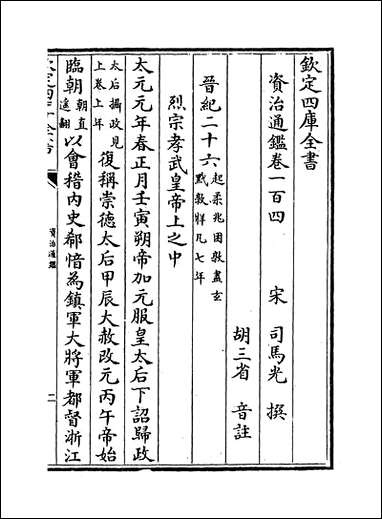 欽定四庫全書
資治通鑑卷一百四
宋 司馬光 撰
胡三省 音註
晉紀二十六起柔兆困敦盡玄黓敦牂凡七年
烈宗孝武皇帝上之中
太元元年春正月壬寅朔帝加元服皇太后下詔歸政
太后攝政見上卷上年復稱崇德太后甲辰大赦改元丙午帝始
臨朝朝直遙翻以會稽內史郗愔為鎮軍大將軍都督浙江
資治通鑑